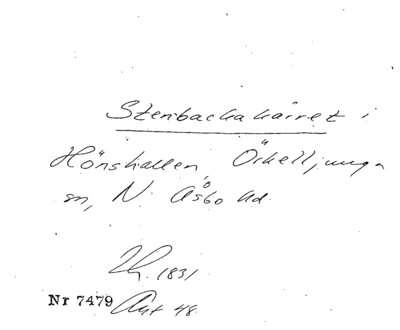 Stenbackakärret i
Hönshallen, Örkelljunga
sn, N. Åsbo hd.
Lh. 1831
Nr 7479 Akt 48